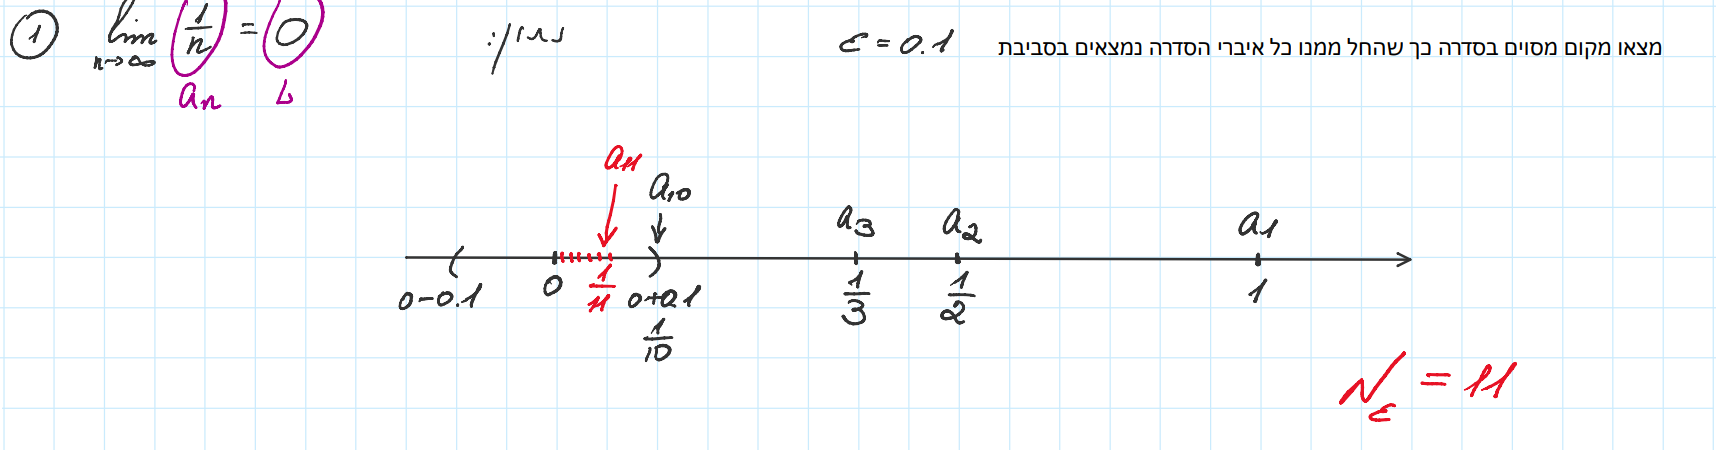 ① lim n→∞ 1/n = 0 נתון: מצאו מקום מסוים בסדרה כך שהחל ממנו כל איברי הסדרה נמצאים בסביבת ε = 0.1
aₙ L
a₁₁
a₁₀ a₃ a₂ a₁
0-0.1 0 1/11 0+0.1 1/3 1/2 1
1/10
N_ε = 11